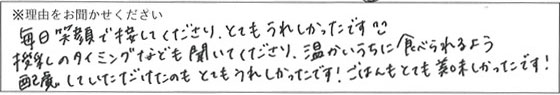 ※理由をお聞かせください
毎日笑顔で接してくださり、とてもうれしかったです
授乳のタイミングなども聞いてくださり、温かいうちに食べられるよう
配慮していただけたのもとてもうれしかったです!ごはんもとても美味しかったです!